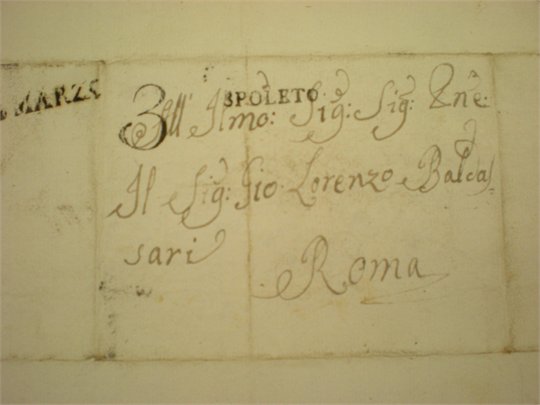 MARZO
SPOLETO
All' Ilmo: Sig: Sig: Pne:
Il Sig: Gio Lorenzo Baldas
sari
Roma